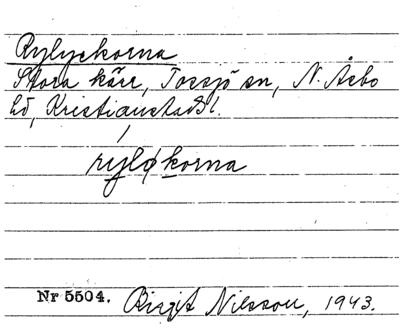 Rylyckorna
Stora kärr, Tossjö sn, N. Åsbo
hd, Kristianstads l.
ryløkorna
Nr 5504. Birgit Nilsson, 1943.